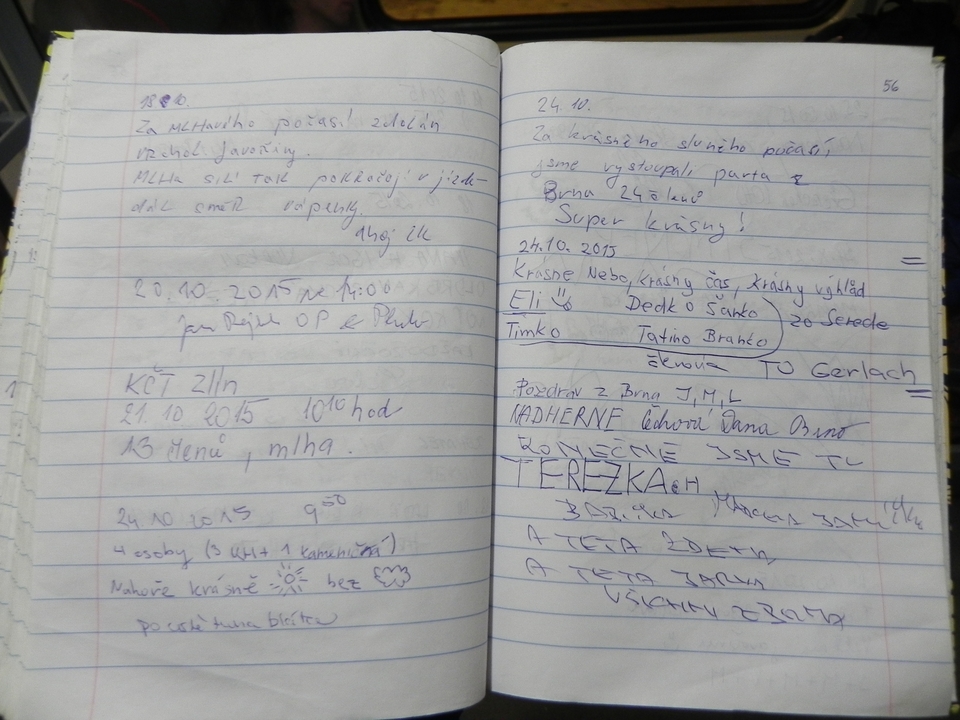 Za MLHavého počasí zdolán
vrchol Javořiny.
MLHa sílí tak pokračuji v jízdě
dál směr Vápenky.
Ahoj
20.10.2015 ve 14:00
Jan
KČT Zlín
21.10 2015 10¹⁰ hod
13 členů, mlha.
24 10 2015 9⁵⁰
4 osoby (3 UH + 1
Nahoře krásně bez
po cestě tuna blátka
56
24.10.
Za krásného slunného počasí,
jsme vystoupali parta z
Brna 24 členů
Super krásný!
24.10. 2015
Krásne Nebo, krásny čas, krásny výhľad
Eli Dedko Šaňko
zo Serede
Timko Tatino Branko
TO Gerlach
Pozdrav z Brna J, M, L
NÁDHERNĚ Čechová Dana Brno
KONEČNĚ JSME TU
TEREZKA
A TETA ZDENA
A TETA
VŠICHNI Z